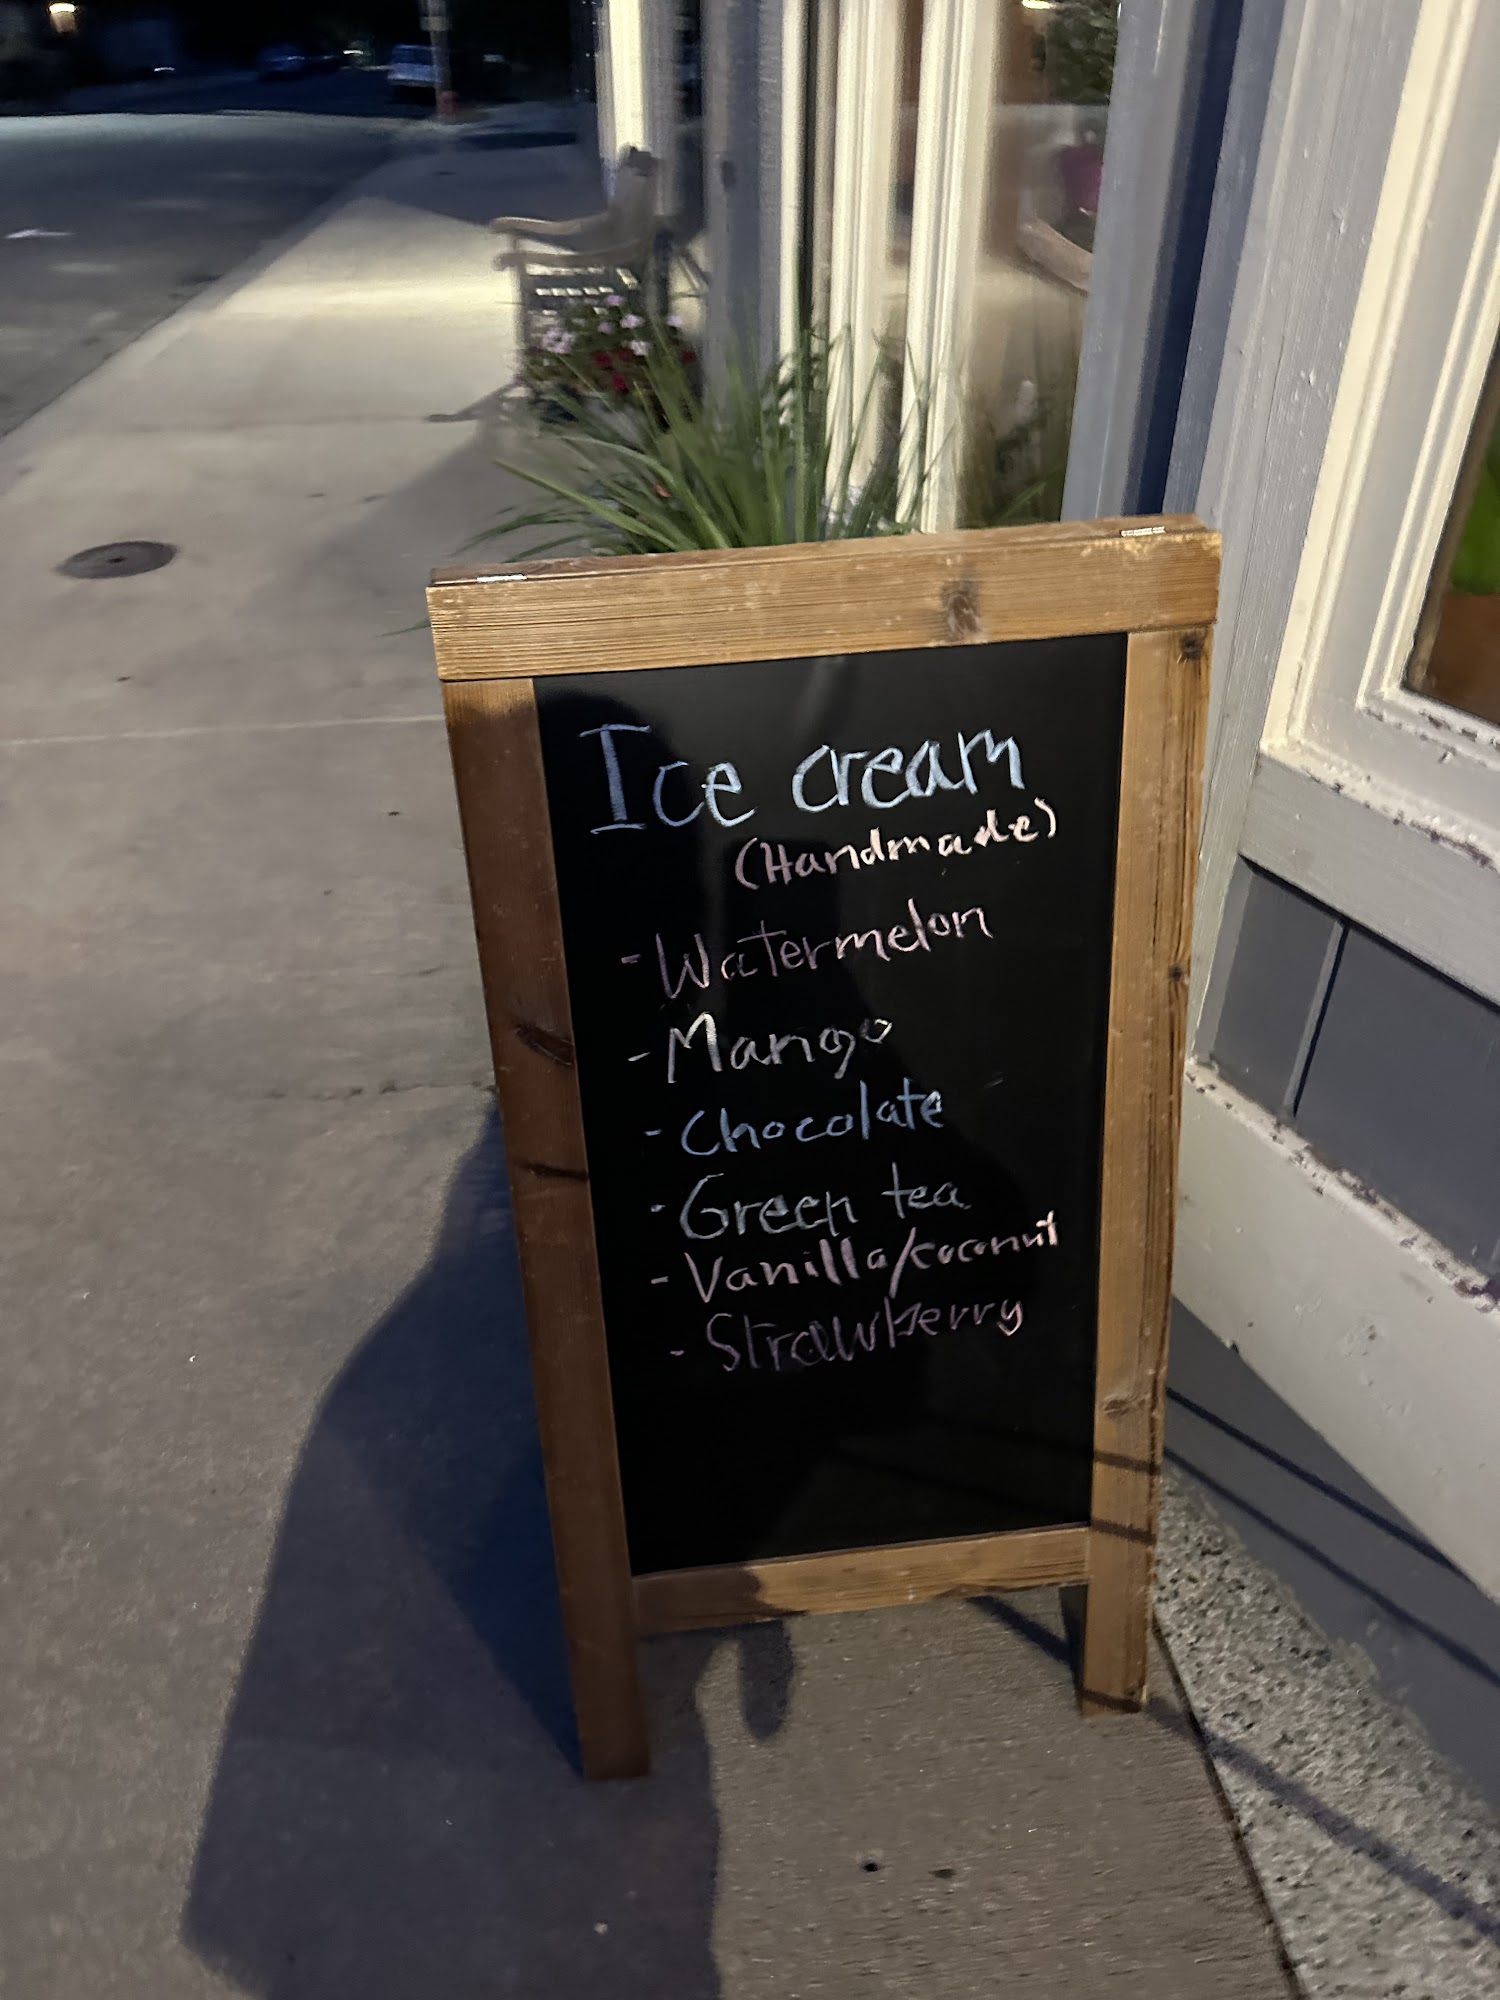 Ice cream
(Handmade)
- Watermelon
- Mango
- Chocolate
- Green tea
- Vanilla/coconut
- Strawberry